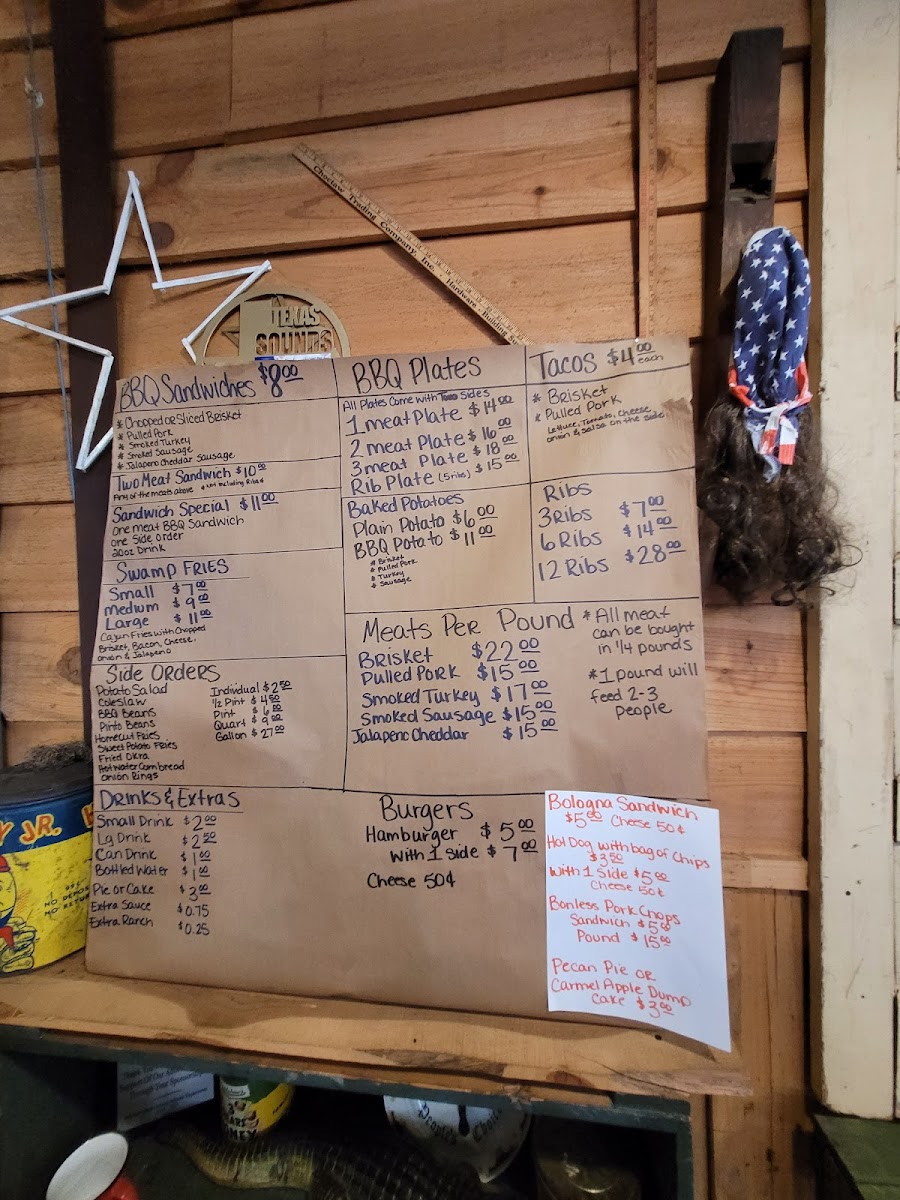 Choctaw Trading Company, Inc. Hardware - Building
TEXAS
SOUNDS
BBQ Sandwiches $8.00
* Chopped or Sliced Brisket
* Pulled Pork
* Smoked Turkey
* Smoked Sausage
* Jalapeno Cheddar Sausage
Two Meat Sandwich $10.00
Any of the meats above * not including Ribs
Sandwich Special $11.00
one meat BBQ Sandwich
one Side order
20oz Drink
Swamp Fries
Small $7.00
medium $9.00
Large $11.00
Cajun Fries with Chopped
Brisket, Bacon, Cheese,
onion & Jalapeno
Side Orders
Potato Salad
Coleslaw
BBQ Beans
Pinto Beans
Homecut Fries
Sweet Potato Fries
Fried Okra
Hot Water Cornbread
Onion Rings
Individual $2.50
1/2 Pint $4.50
Pint $6.00
Quart $9.00
Gallon $27.00
Drinks & Extras
Small Drink $2.00
Lg Drink $2.50
Can Drink $1.00
Bottled Water $1.00
Pie or Cake $3.00
Extra Sauce $0.75
Extra Ranch $0.25
BBQ Plates
All Plates Come with Two Sides
1 meat Plate $14.00
2 meat Plate $16.00
3 meat Plate $18.00
Rib Plate (5 ribs) $15.00
Baked Potatoes
Plain Potato $6.00
BBQ Potato $11.00
* Brisket
* Pulled Pork
* Turkey
* Sausage
Tacos $4.00 each
* Brisket
* Pulled Pork
Lettuce, Tomato, Cheese,
onion & Salsa on the side
Ribs
3 Ribs $7.00
6 Ribs $14.00
12 Ribs $28.00
Meats Per Pound
Brisket $22.00
Pulled Pork $15.00
Smoked Turkey $17.00
Smoked Sausage $15.00
Jalapeno Cheddar $15.00
* All meat
can be bought
in 1/4 pounds
* 1 pound will
feed 2-3
people
Burgers
Hamburger $5.00
with 1 side $7.00
Cheese 50¢
Bologna Sandwich
$5.00 Cheese 50¢
Hot Dog with bag of Chips
$3.50
with 1 Side $5.00
Cheese 50¢
Bonless Pork Chops
Sandwich $5.00
Pound $15.00
Pecan Pie or
Carmel Apple Dump
Cake $3.00
Y JR.
NO DEPOS
NO RETU